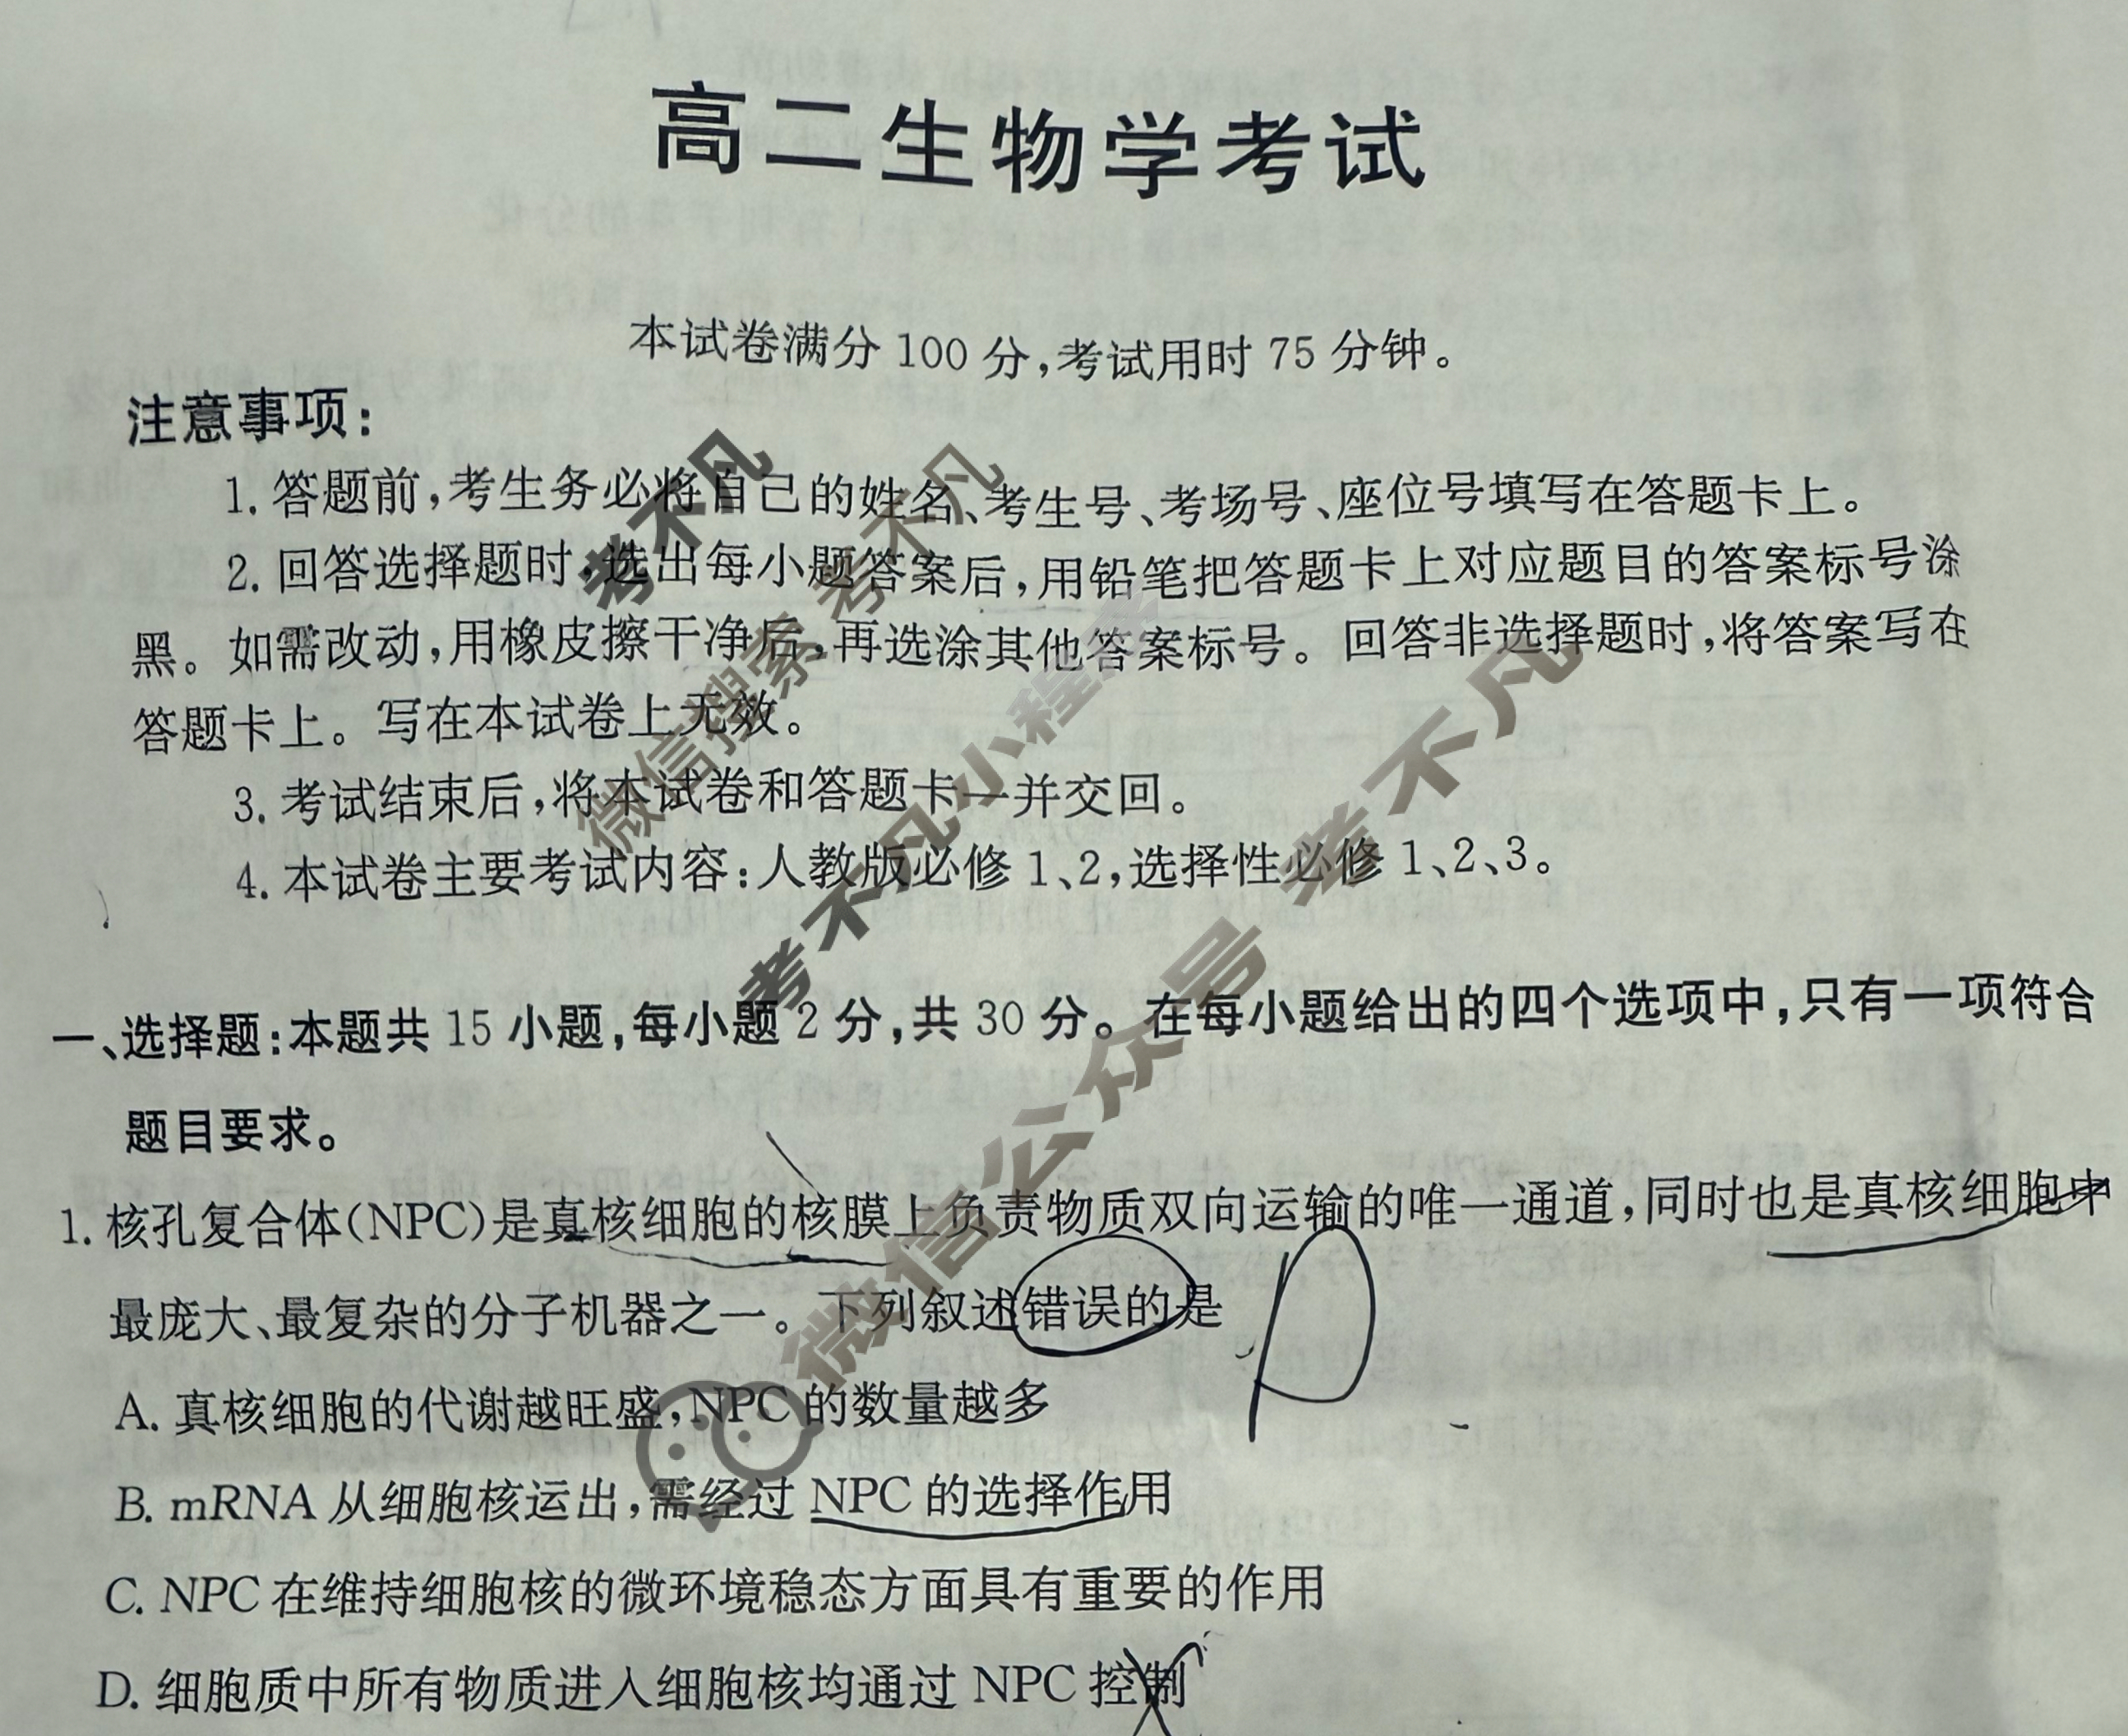 高二生物学考试
本试卷满分 100 分,考试用时 75 分钟。
注意事项:
1. 答题前,考生务必将自己的姓名、考生号、考场号、座位号填写在答题卡上。
2. 回答选择题时,选出每小题答案后,用铅笔把答题卡上对应题目的答案标号涂
黑。如需改动,用橡皮擦干净后,再选涂其他答案标号。回答非选择题时,将答案写在
答题卡上。写在本试卷上无效。
3. 考试结束后,将本试卷和答题卡一并交回。
4. 本试卷主要考试内容:人教版必修 1、2,选择性必修 1、2、3。
一、选择题:本题共 15 小题,每小题 2 分,共 30 分。在每小题给出的四个选项中,只有一项符合
题目要求。
1. 核孔复合体(NPC)是真核细胞的核膜上负责物质双向运输的唯一通道,同时也是真核细胞中
最庞大、最复杂的分子机器之一。下列叙述错误的是
D
A. 真核细胞的代谢越旺盛,NPC 的数量越多
B. mRNA 从细胞核运出,需经过 NPC 的选择作用
C. NPC 在维持细胞核的微环境稳态方面具有重要的作用
D. 细胞质中所有物质进入细胞核均通过 NPC 控制
考不凡
微信搜索 考不凡
考不凡小程序
微信公众号 考不凡